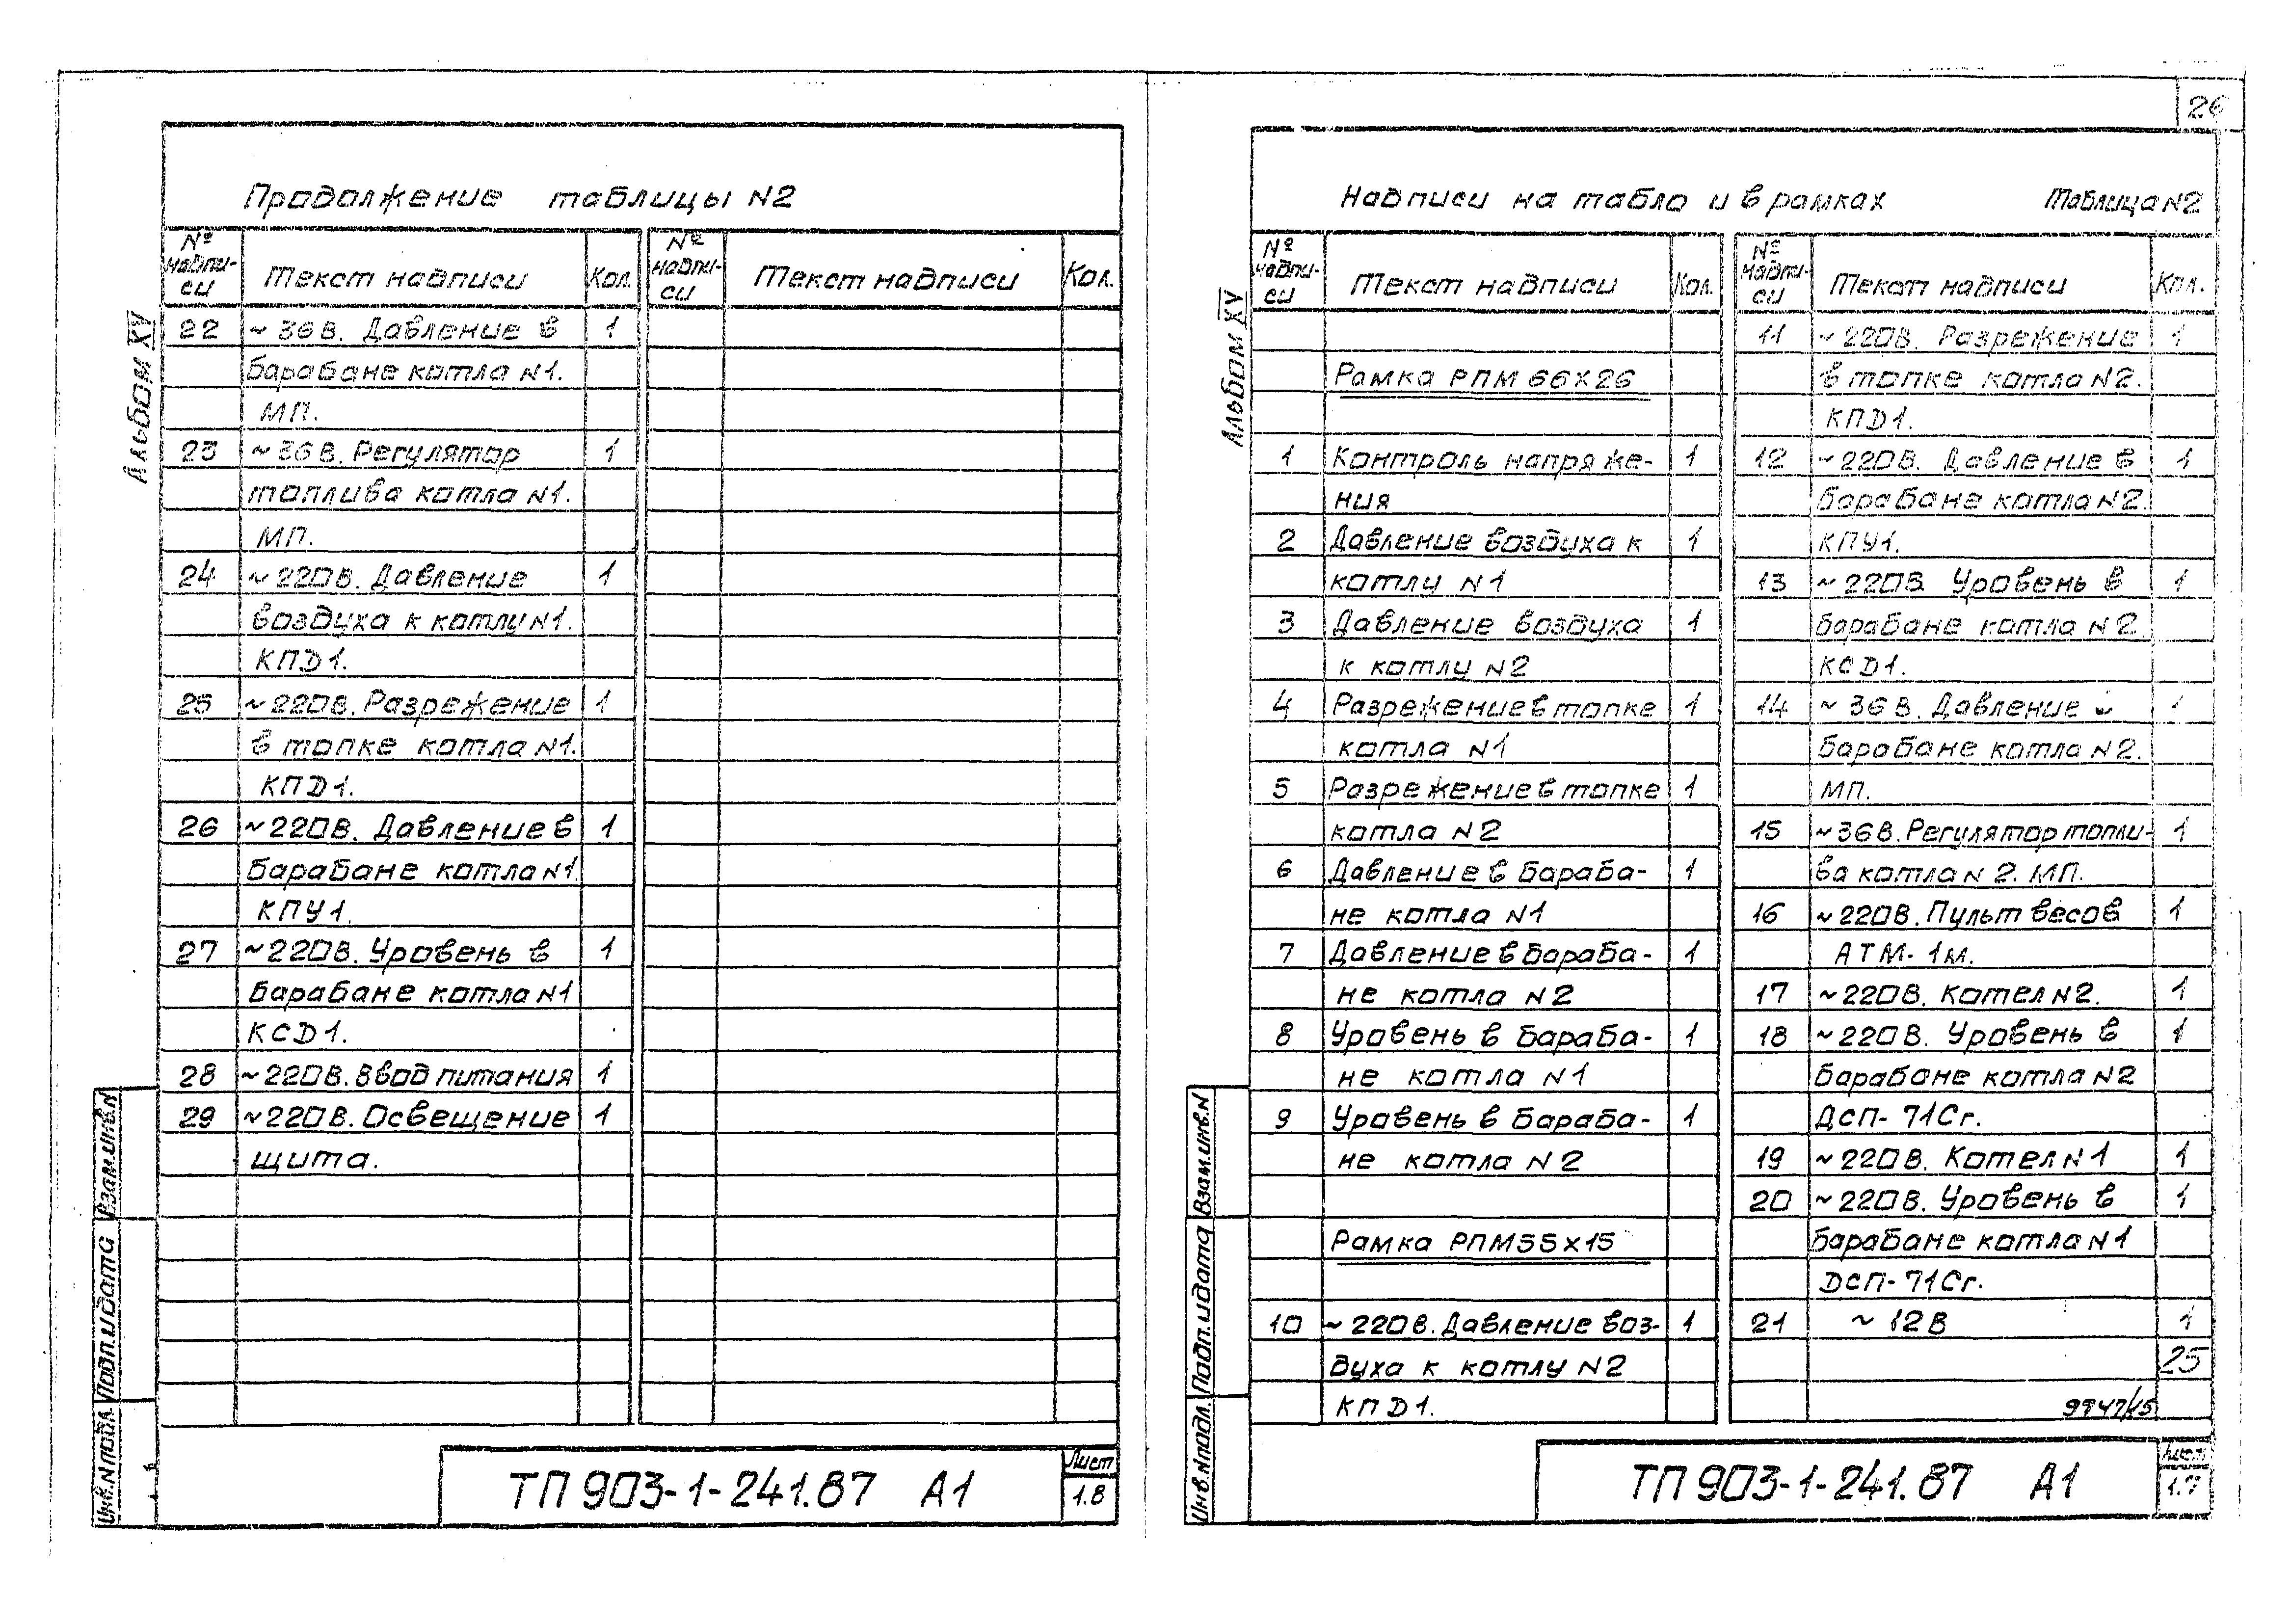 Продолжение таблицы N2
№ надпи- Текст надписи Кол. № надпи- Текст надписи Кол.
си си
22 ~ 36 В. Давление в 1
барабане котла N1.
МП.
23 ~ 36 В. Регулятор 1
топлива котла N1.
МП.
24 ~ 220 В. Давление 1
воздуха к котлу N1.
КПД1.
25 ~ 220В. Разрежение 1
в топке котла N1.
КПД1.
26 ~ 220В. Давление в 1
барабане котла N1.
КПУ1.
27 ~ 220В. Уровень в 1
барабане котла N1
КСД1.
28 ~ 220В. Ввод питания 1
29 ~ 220В. Освещение 1
щита.
Альбом XV
Взам.инв.N
Подп.и дата
Инв.N подл.
ТП 903-1-241.87 А1
Лист
1.8
26
Надписи на табло и в рамках Таблица N2
№ надпи- Текст надписи Кол. № надпи- Текст надписи Кол.
си си
Рамка РПМ 66×26
1 Контроль напряже- 1
ния
2 Давление воздуха к 1
котлу N1
3 Давление воздуха 1
к котлу N2
4 Разрежение в топке 1
котла N1
5 Разрежение в топке 1
котла N2
6 Давление в бараба- 1
не котла N1
7 Давление в бараба- 1
не котла N2
8 Уровень в бараба- 1
не котла N1
9 Уровень в бараба- 1
не котла N2
Рамка РПМ55×15
10 ~ 220В. Давление воз- 1
духа к котлу N2
КПД1.
11 ~ 220В. Разрежение 1
в топке котла N2.
КПД1.
12 ~ 220В. Давление в 1
барабане котла N2.
КПУ1.
13 ~ 220В. Уровень в 1
барабане котла N2.
КСД1.
14 ~ 36 В. Давление в 1
барабане котла N2.
МП.
15 ~ 36В. Регулятор топли- 1
ва котла N 2. МП.
16 ~ 220В. Пульт весов 1
АТМ-1м.
17 ~ 220В. Котел N2. 1
18 ~ 220В. Уровень в 1
барабане котла N2
ДСП-71Сг.
19 ~ 220В. Котел N1 1
20 ~ 220В. Уровень в 1
барабане котла N1
ДСП-71Сг.
21 ~ 12В 1
25
Альбом XV
Взам.инв.N
Подп.и дата
Инв.N подл.
ТП 903-1-241.87 А1
Лист
1.7